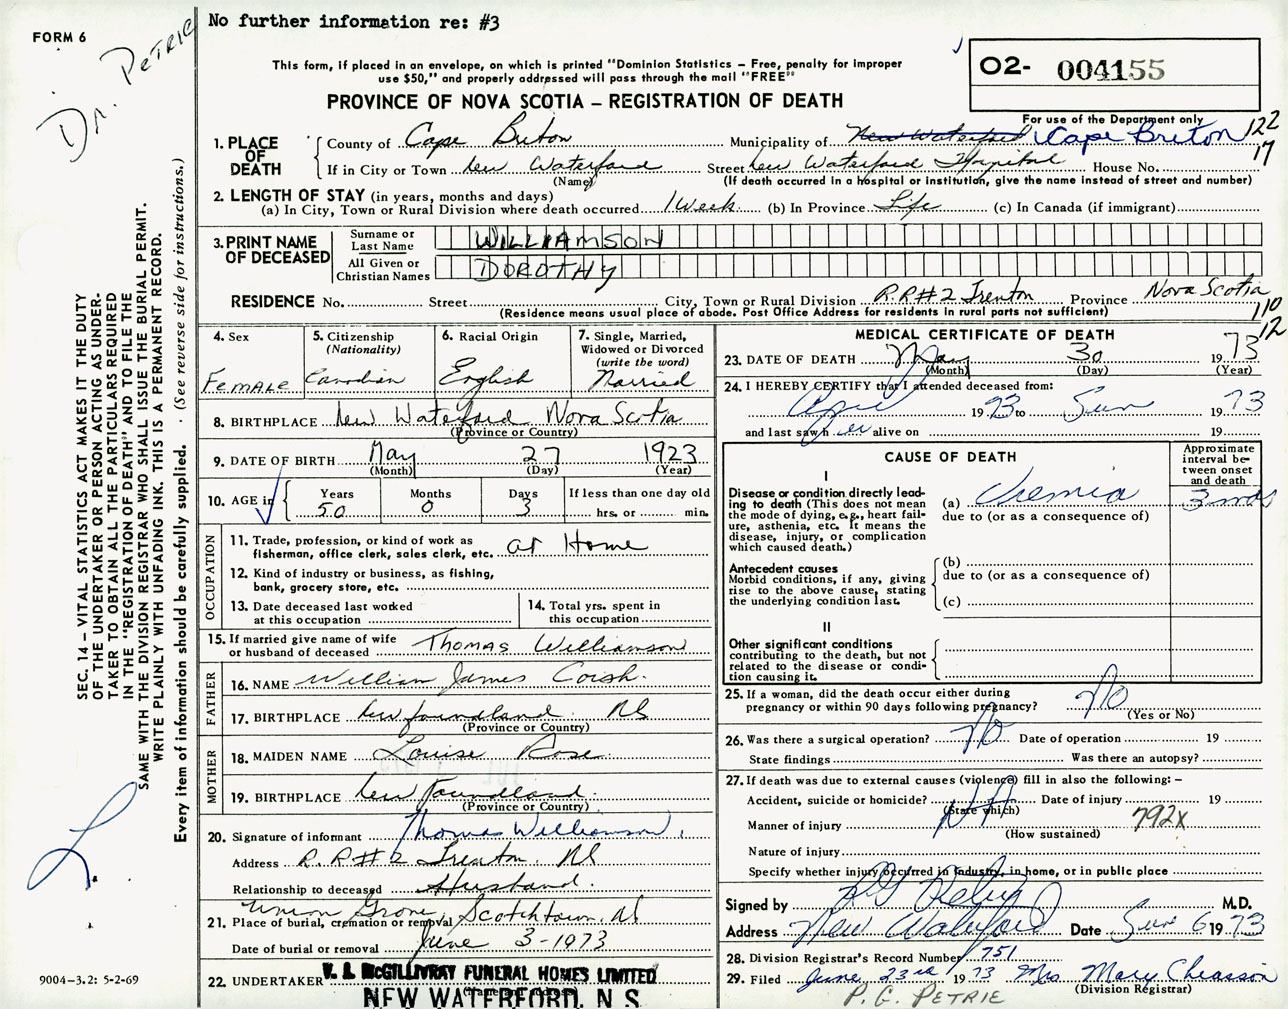 FORM 6
Dr. PETRIE
No further information re: #3
This form, if placed in an envelope, on which is printed "Dominion Statistics – Free, penalty for improper
use $50," and properly addressed will pass through the mail "FREE"
O2- 004155
PROVINCE OF NOVA SCOTIA – REGISTRATION OF DEATH
For use of the Department only
1. PLACE OF DEATH
County of Cape Breton
Municipality of New Waterford Cape Breton 122
17
If in City or Town New Waterford Street New Waterford Hospital House No.
(Name) (If death occurred in a hospital or institution, give the name instead of street and number)
2. LENGTH OF STAY (in years, months and days)
(a) In City, Town or Rural Division where death occurred 1 Week (b) In Province Life (c) In Canada (if immigrant)
3. PRINT NAME OF DECEASED
Surname or Last Name WILLIAMSON
All Given or Christian Names DOROTHY
RESIDENCE No. Street City, Town or Rural Division R.R#2 Trenton Province Nova Scotia
(Residence means usual place of abode. Post Office Address for residents in rural parts not sufficient)
110
12
4. Sex Female
5. Citizenship (Nationality) Canadian
6. Racial Origin English
7. Single, Married, Widowed or Divorced (write the word) Married
8. BIRTHPLACE New Waterford Nova Scotia
(Province or Country)
9. DATE OF BIRTH May 27 1923
(Month) (Day) (Year)
10. AGE in Years 50 Months 0 Days 3 If less than one day old
hrs. or min.
OCCUPATION
11. Trade, profession, or kind of work as
fisherman, office clerk, sales clerk, etc. at Home
12. Kind of industry or business, as fishing,
bank, grocery store, etc.
13. Date deceased last worked
at this occupation
14. Total yrs. spent in
this occupation
15. If married give name of wife
or husband of deceased Thomas Williamson
FATHER
16. NAME William James Coish
17. BIRTHPLACE Newfoundland NS
(Province or Country)
MOTHER
18. MAIDEN NAME Louise Rose
19. BIRTHPLACE New Foundland
(Province or Country)
20. Signature of informant Thomas Williamson
Address R.R#2 Trenton. NS
Relationship to deceased Husband.
21. Place of burial, cremation or removal Union Grove, Scotchtown, NS
Date of burial or removal June 3-1973
22. UNDERTAKER V. J. McGILLIVRAY FUNERAL HOMES LIMITED
NEW WATERFORD, N. S.
MEDICAL CERTIFICATE OF DEATH
23. DATE OF DEATH May 30 1973
(Month) (Day) (Year)
24. I HEREBY CERTIFY that I attended deceased from:
1973 to Jun 1973
and last saw h er alive on 19
CAUSE OF DEATH
Approximate interval between onset and death
I
Disease or condition directly lead-
ing to death (This does not mean
the mode of dying, e.g., heart fail-
ure, asthenia, etc. It means the
disease, injury, or complication
which caused death.)
(a) Uremia 3 mos
due to (or as a consequence of)
Antecedent causes
Morbid conditions, if any, giving
rise to the above cause, stating
the underlying condition last.
(b)
due to (or as a consequence of)
(c)
II
Other significant conditions
contributing to the death, but not
related to the disease or condi-
tion causing it.
25. If a woman, did the death occur either during
pregnancy or within 90 days following pregnancy? No
(Yes or No)
26. Was there a surgical operation? No Date of operation 19
State findings Was there an autopsy?
27. If death was due to external causes (violence) fill in also the following: –
Accident, suicide or homicide? Date of injury 19
(State which)
Manner of injury 792x
(How sustained)
Nature of injury
Specify whether injury occurred in industry, in home, or in public place
Signed by M.D.
Address New Waterford Date Jun 6 1973
28. Division Registrar's Record Number 751
29. Filed June 23rd 1973 Mrs Mary Chiasson
(Division Registrar)
P. G. PETRIE
SEC. 14 – VITAL STATISTICS ACT MAKES IT THE DUTY
OF THE UNDERTAKER OR PERSON ACTING AS UNDER-
TAKER TO OBTAIN ALL THE PARTICULARS REQUIRED
IN THE "REGISTRATION OF DEATH" AND TO FILE THE
SAME WITH THE DIVISION REGISTRAR WHO SHALL ISSUE THE BURIAL PERMIT.
WRITE PLAINLY WITH UNFADING INK. THIS IS A PERMANENT RECORD.
Every item of information should be carefully supplied. (See reverse side for instructions.)
9004-3.2: 5-2-69